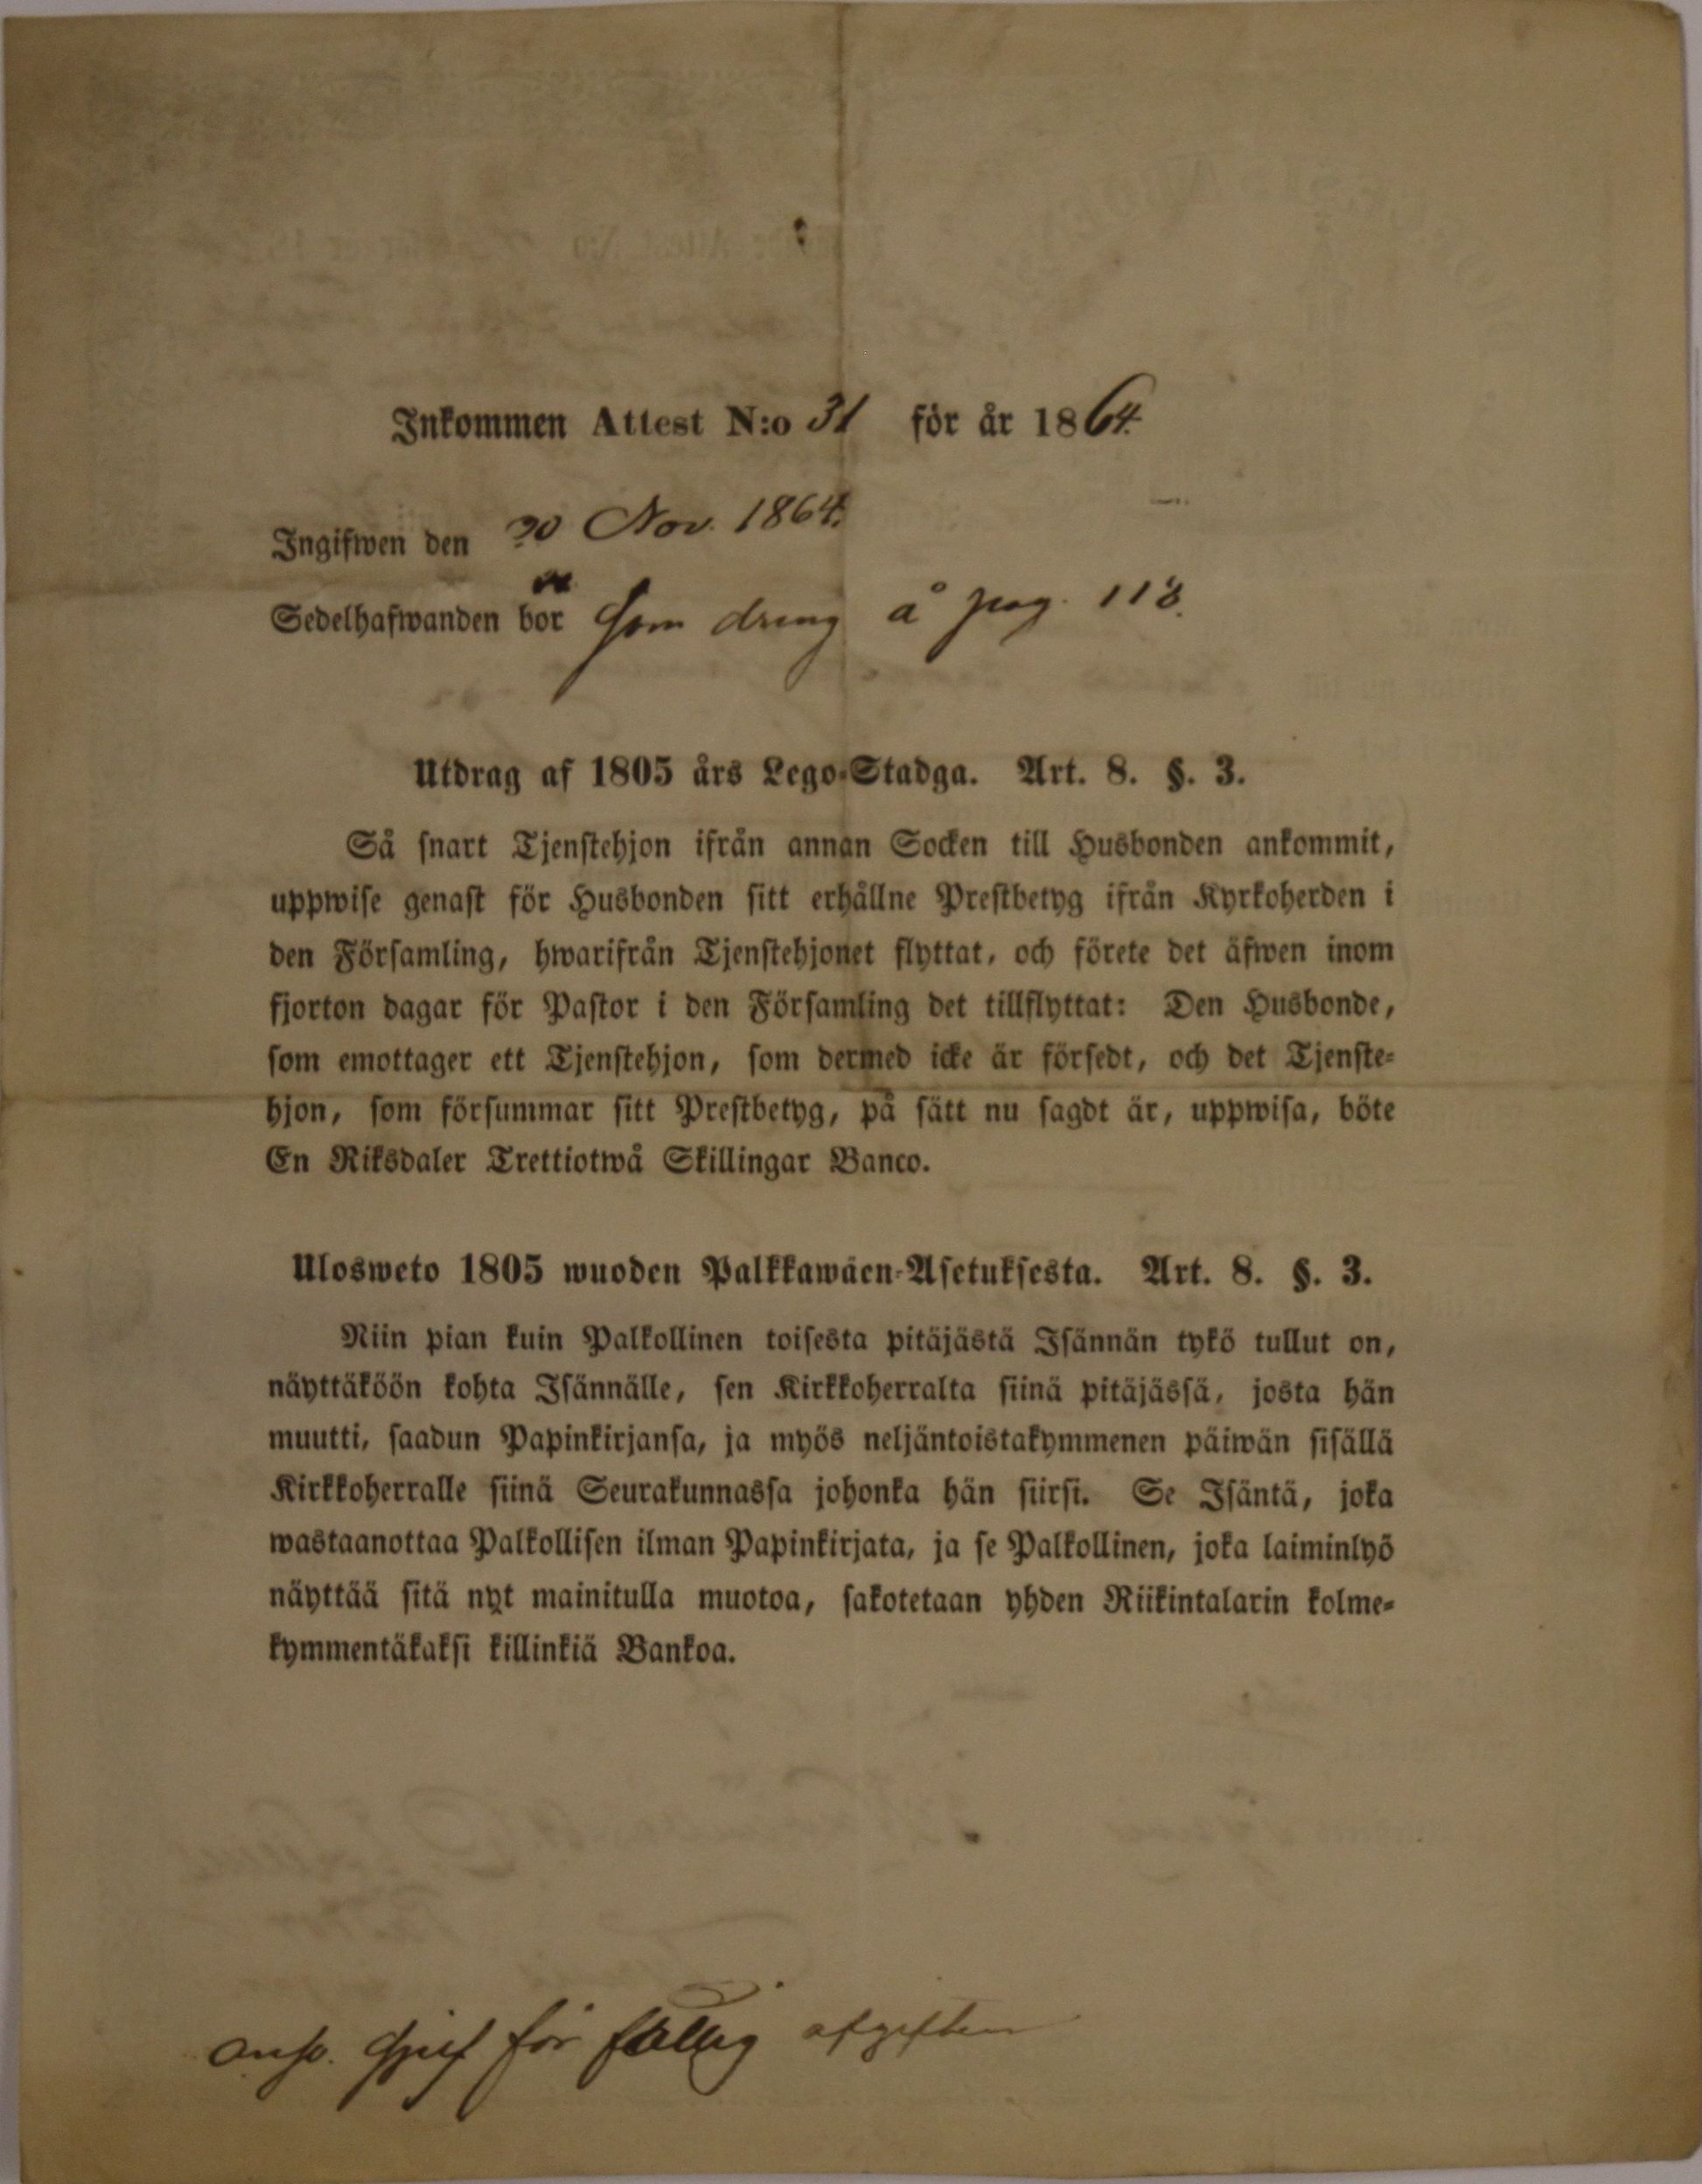 Inkommen Attest N:o 31 för år 1864.
Ingifwen den 30 Nov. 1864.
Sedelhafwanden bor som dreng å pag. 118.
Utdrag af 1805 års Lego-Stadga. Art. 8. §. 3.
Så snart Tjenstehjon ifrån annan Socken till Husbonden ankommit,
uppwise genast för Husbonden sitt erhållne Prestbetyg ifrån Kyrkoherden i
den Församling, hwarifrån Tjenstehjonet flyttat, och förete det äfwen inom
fjorton dagar för Pastor i den Församling det tillflyttat: Den Husbonde,
som emottager ett Tjenstehjon, som dermed icke är försedt, och det Tjenste-
hjon, som försummar sitt Prestbetyg, på sätt nu sagdt är, uppwisa, böte
En Riksdaler Trettiotwå Skillingar Banco.
Ulosweto 1805 wuoden Palkkawäen-Asetuksesta. Art. 8. §. 3.
Niin pian kuin Palkollinen toisesta pitäjästä Isännän tykö tullut on,
näyttäköön kohta Isännälle, sen Kirkkoherralta siinä pitäjässä, josta hän
muutti, saadun Papinkirjansa, ja myös neljäntoistakymmenen päiwän sisällä
Kirkkoherralle siinä Seurakunnassa johonka hän siirsi. Se Isäntä, joka
wastaanottaa Palkollisen ilman Papinkirjata, ja se Palkollinen, joka laiminlyö
näyttää sitä nyt mainitulla muotoa, sakotetaan yhden Riikintalarin kolme-
kymmentäkaksi killinkiä Bankoa.
för fällig afgiften